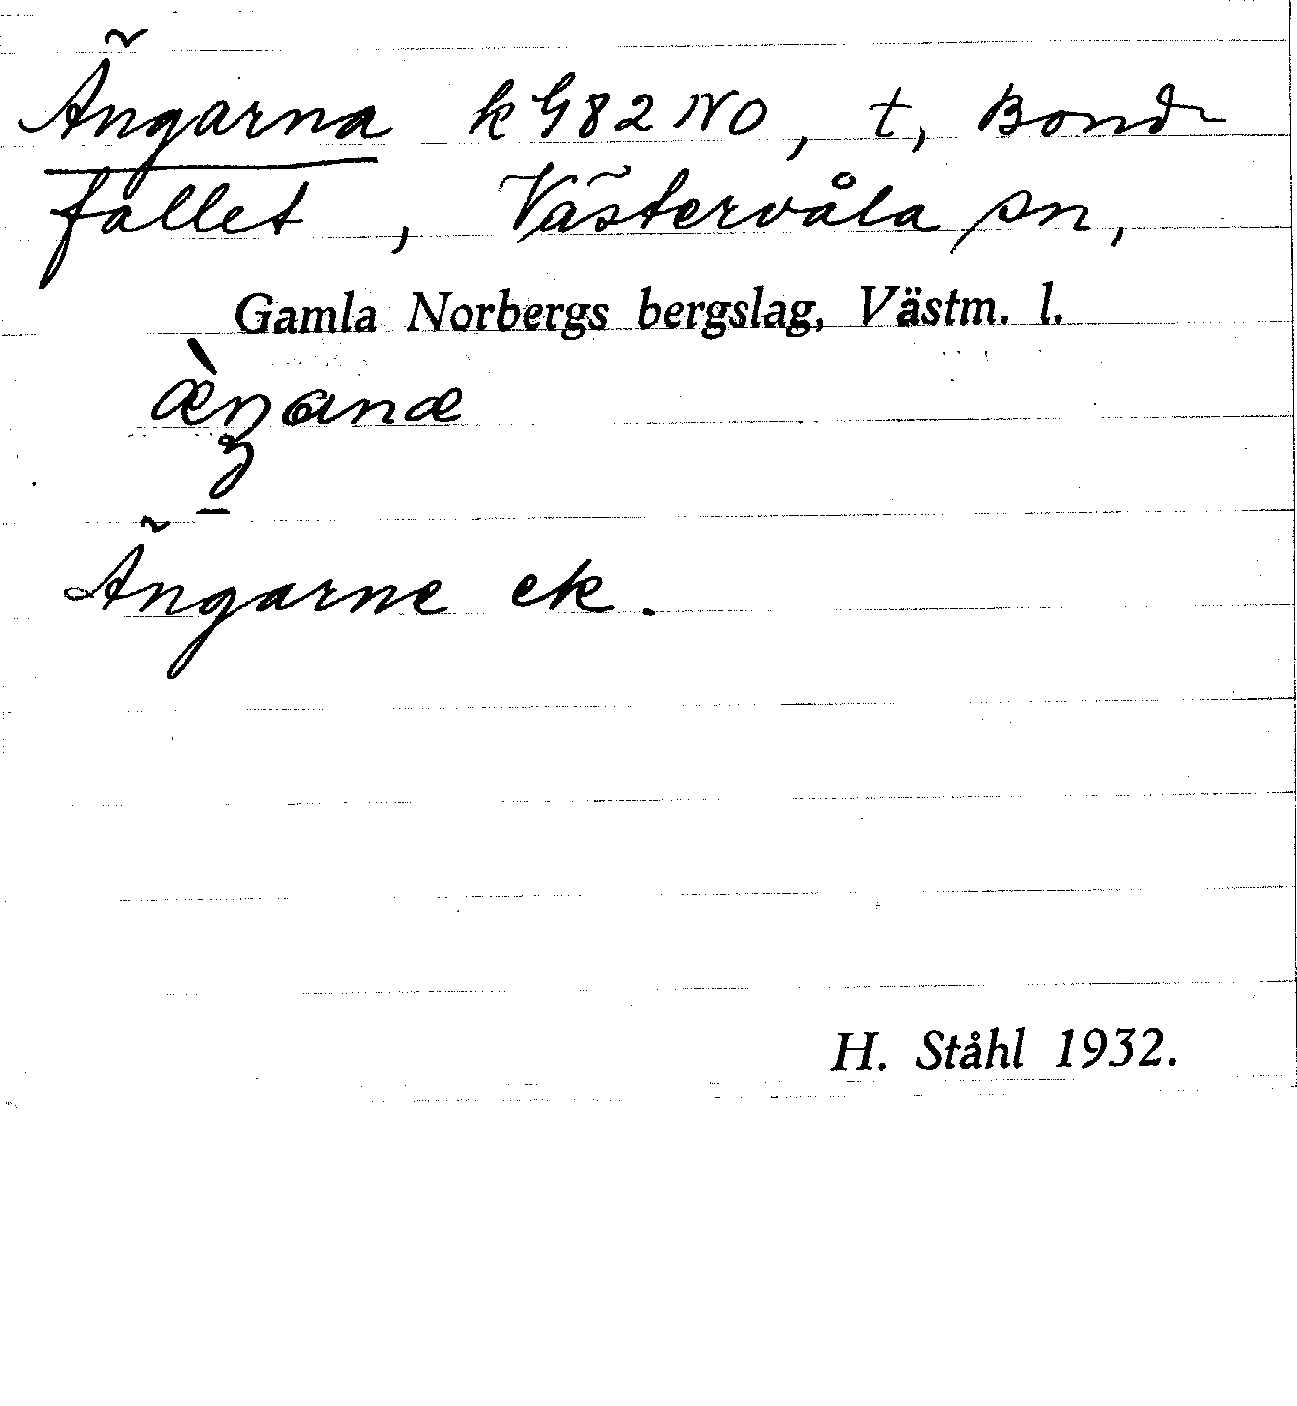 Ängarna k G82 NO, t, Bond
fallet, Västervåla sn,
Gamla Norbergs bergslag, Västm. l.
Ängarne ek.
H. Ståhl 1932.